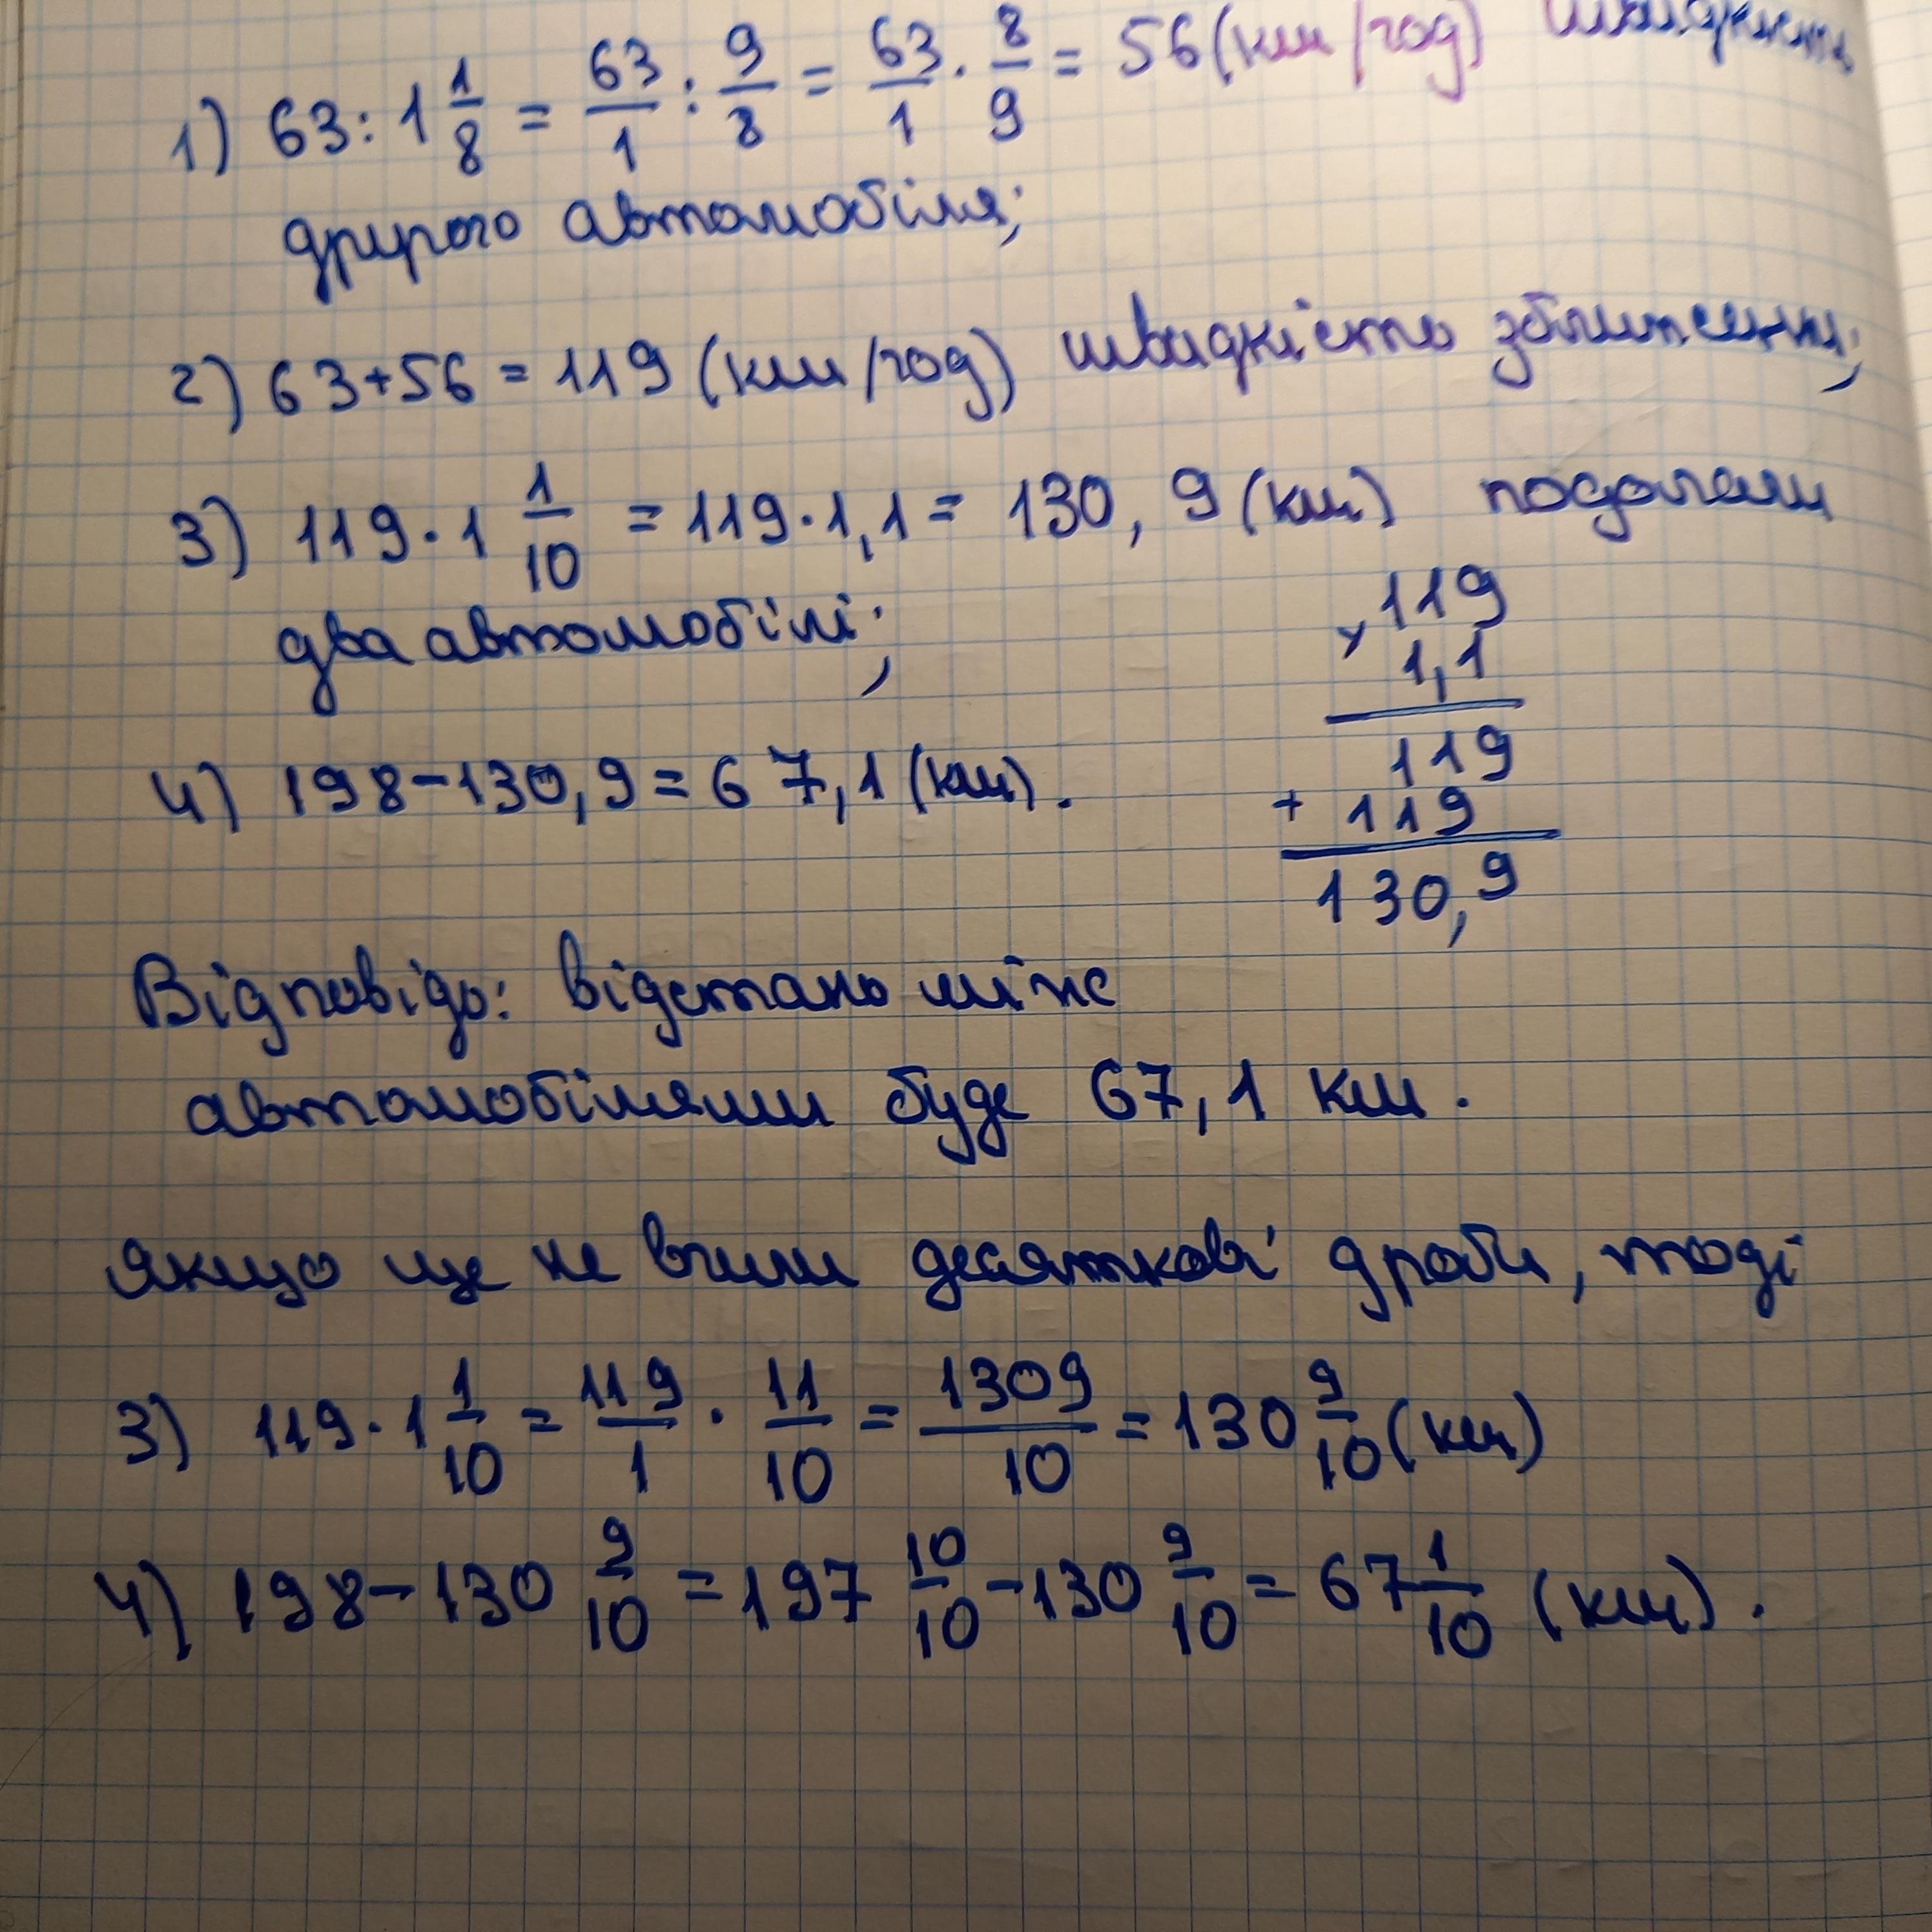 1) 63 : 1 1/8 = 63/1 : 9/8 = 63/1 · 8/9 = 56 (км/год) швидкість
другого автомобіля;
2) 63+56 = 119 (км/год) швидкість зближення;
3) 119 · 1 1/10 = 119 · 1,1 = 130,9 (км) подолали
два автомобілі;
× 119
1,1
119
+ 119
130,9
4) 198 - 130,9 = 67,1 (км).
Відповідь: відстань між
автомобілями буде 67,1 км.
якщо ще не вчили десяткові дроби, тоді
3) 119 · 1 1/10 = 119/1 · 11/10 = 1309/10 = 130 9/10 (км)
4) 198 - 130 9/10 = 197 10/10 - 130 9/10 = 67 1/10 (км).